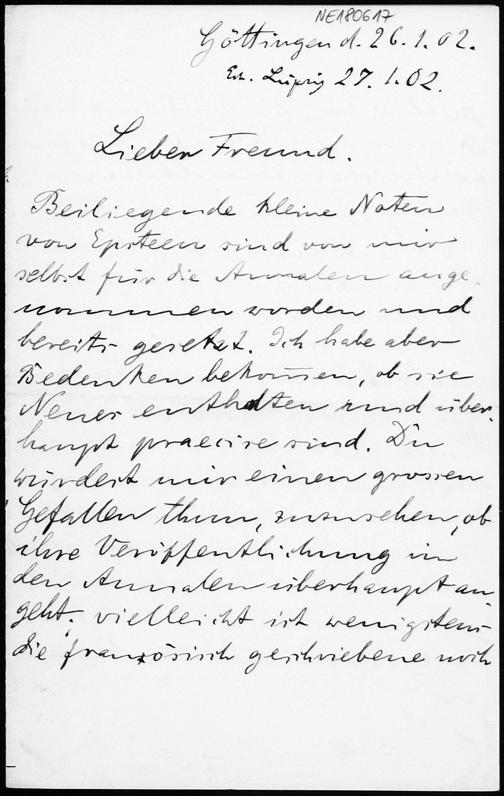 NE180617
Göttingen d. 26.1.02.
Erh. Leipzig 27.1.02.
Lieber Freund.
Beiliegende kleine Noten
von Epsteen sind von mir
selbst für die Annalen ange-
nommen worden und
bereits gesetzt. Ich habe aber
Bedenken bekommen, ob sie
Neues enthalten und über-
haupt praecise sind. Du
würdest mir einen grossen
Gefallen thun, zuzusehen, ob
ihre Veröffentlichung in
den Annalen überhaupt an-
geht. vielleicht ist wenigstens
die französisch geschriebene noch